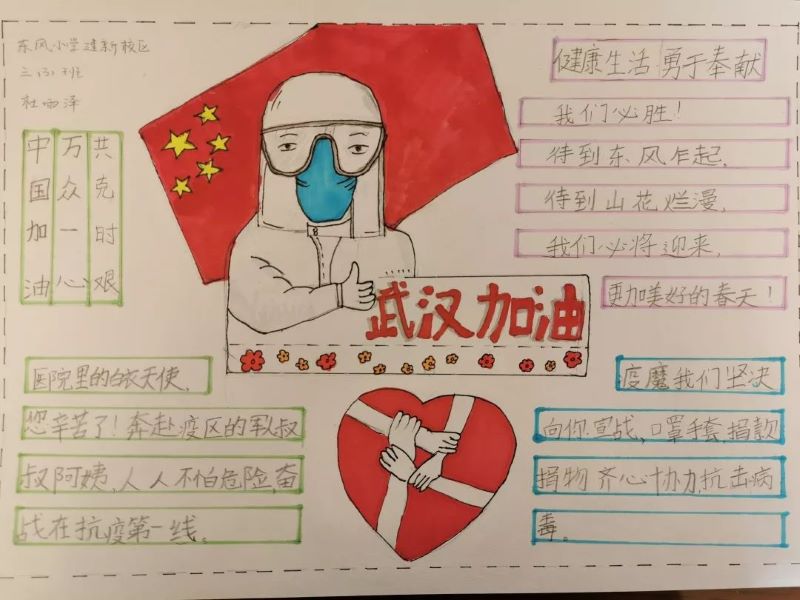 东风小学建新校区
三(3)班
杜雨泽
共克时艰
万众一心
中国加油
健康生活 勇于奉献
我们必胜!
待到东风乍起,
待到山花烂漫,
我们必将迎来,
更加美好的春天!
武汉加油
医院里的白衣天使,
您辛苦了!奔赴疫区的军叔
叔阿姨,人人不怕危险,奋
战在抗疫第一线。
疫魔我们坚决
向你宣战,口罩手套,捐款
捐物齐心协力抗击病
毒。